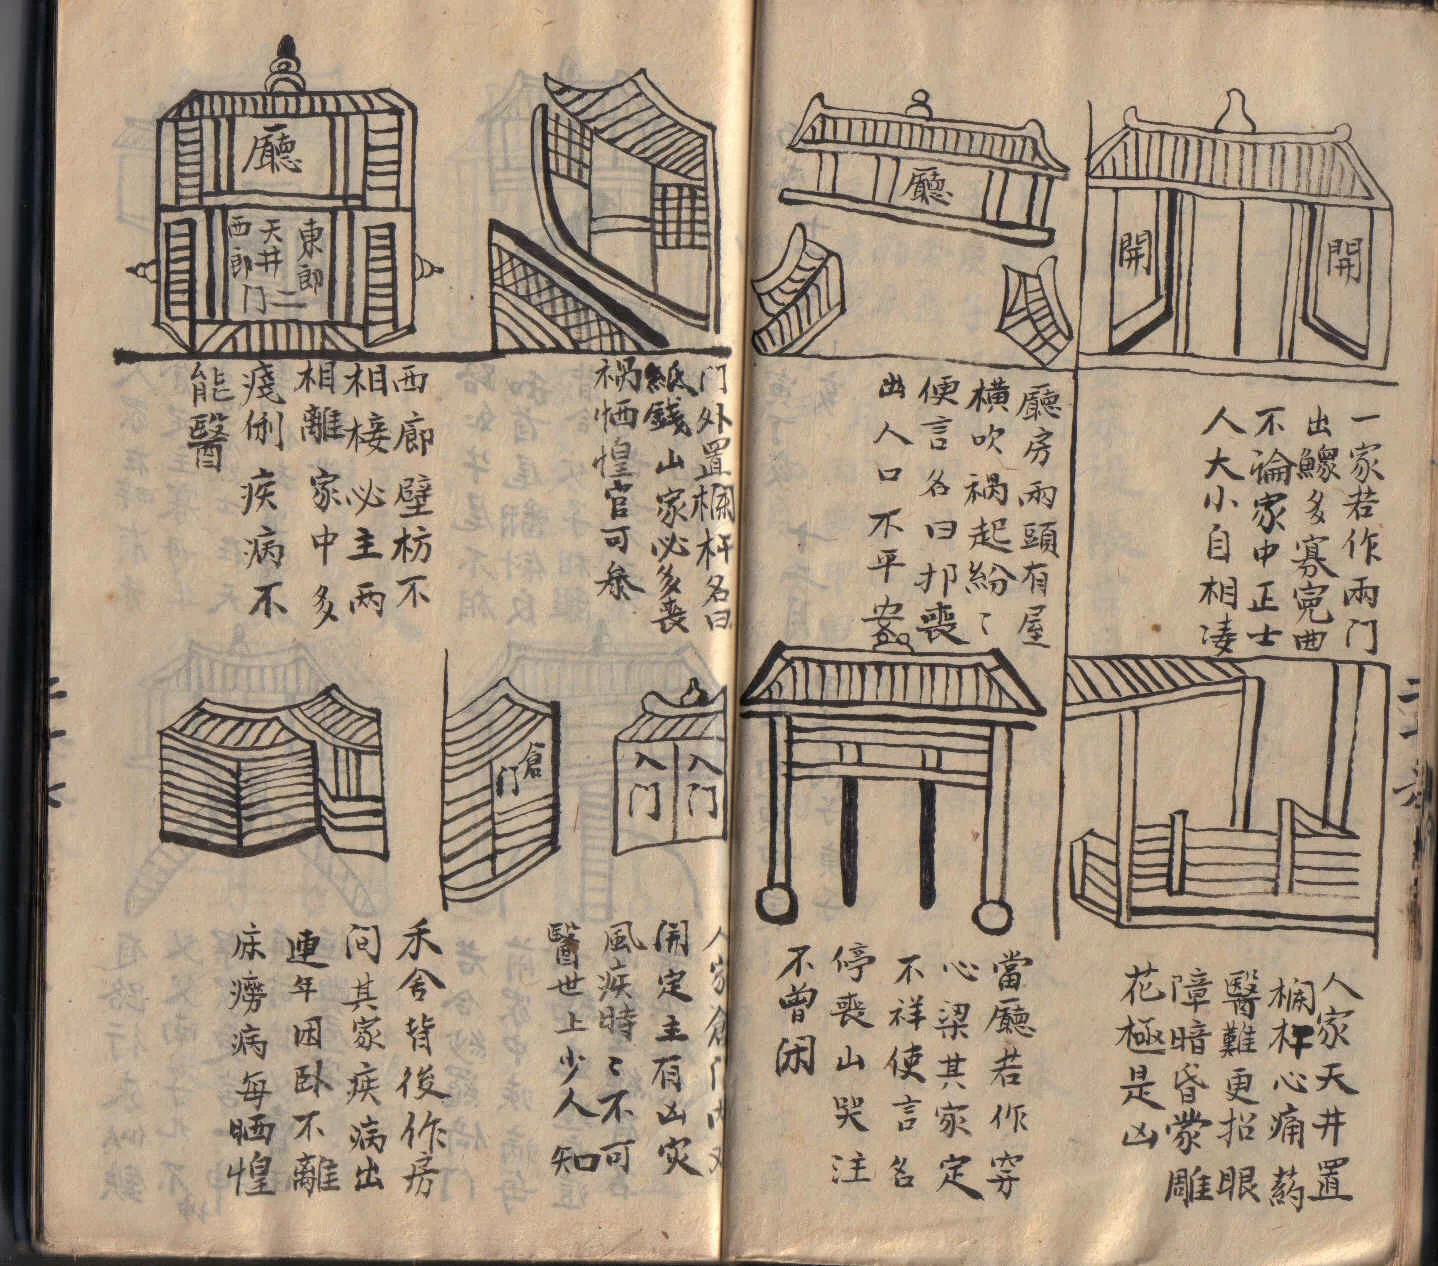 開
開
一家若作兩門
出鰥多寡寃曲
不論家中正士
人大小自相凌
廳
廳房兩頭有屋
橫吹禍起紛〻
便言名曰邦喪
出人口不平安
人家天井置
欄杆心痛药
醫難更招眼
障暗昏蒙雕
花極是凶
當廳若作穿
心梁其家定
不祥使言名
停喪山哭注
不曾闲
门外置欄杆名曰
紙錢山家必多喪
禍恓惶官可叅
廳
東郎
天井二
西郎门
西廊壁枋不
相接必主两
相離家中多
殘俐疾病不
能醫
入门
入门
倉门
人家倉门
開定主有凶灾
風疾時〻不可
醫世上少人知
禾舍背後作房
问其家疾病出
連年困卧不離
床癆病每晒惶